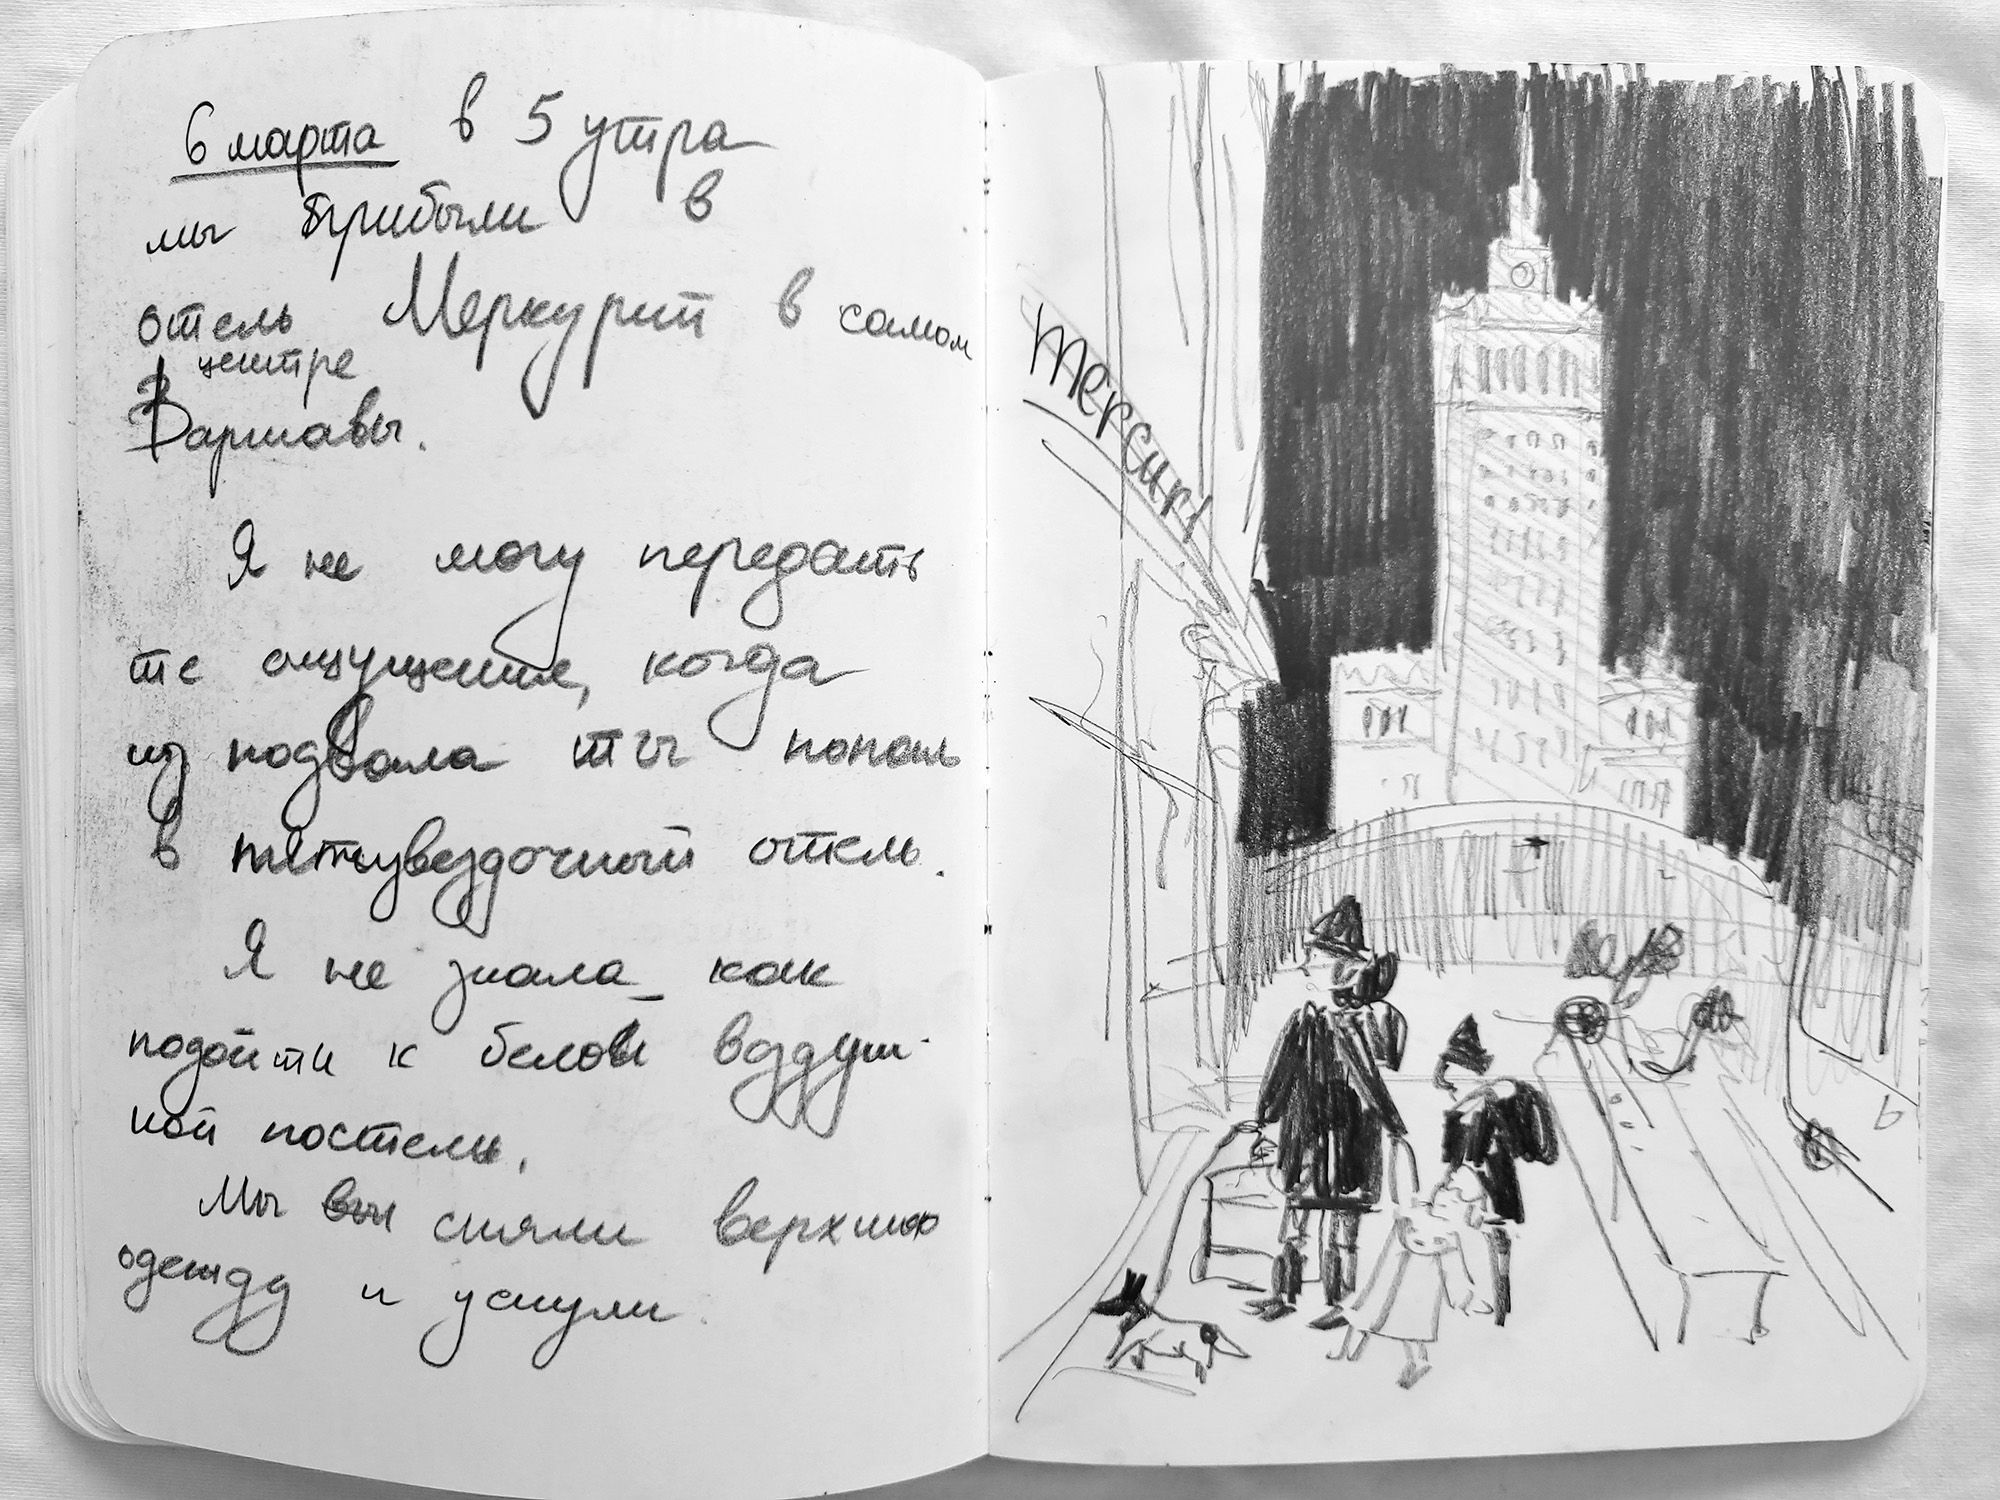 6 марта в 5 утра
мы прибыли в
отель Меркурий в самом
центре
Варшавы.
Я не могу передать
те ощущение, когда
из подвала ты попаль
в пятизвездочный отель.
Я не знала как
подойти к белой воздуш-
ной постели.
Мы вы сняли верхнюю
одежду и уснули.
Mercuri